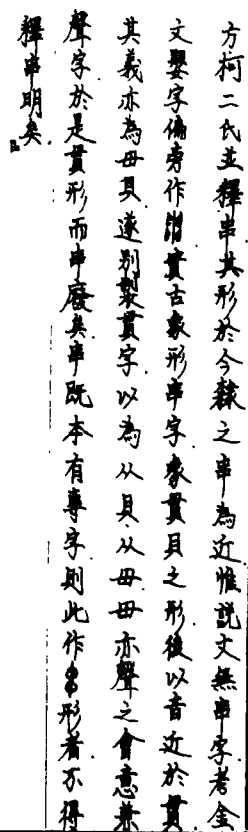 方柯二氏並釋串其形於今隸之串為近惟說文無串字考金
文嬰字偏旁作賏實古象形串字象貫貝之形後以音近於貫
其義亦為毌貝遂別製貫字以為从貝从毌毌亦聲之會意兼
聲字於是貫形而串廢矣串既本有專字則此作形者不得
釋串明矣